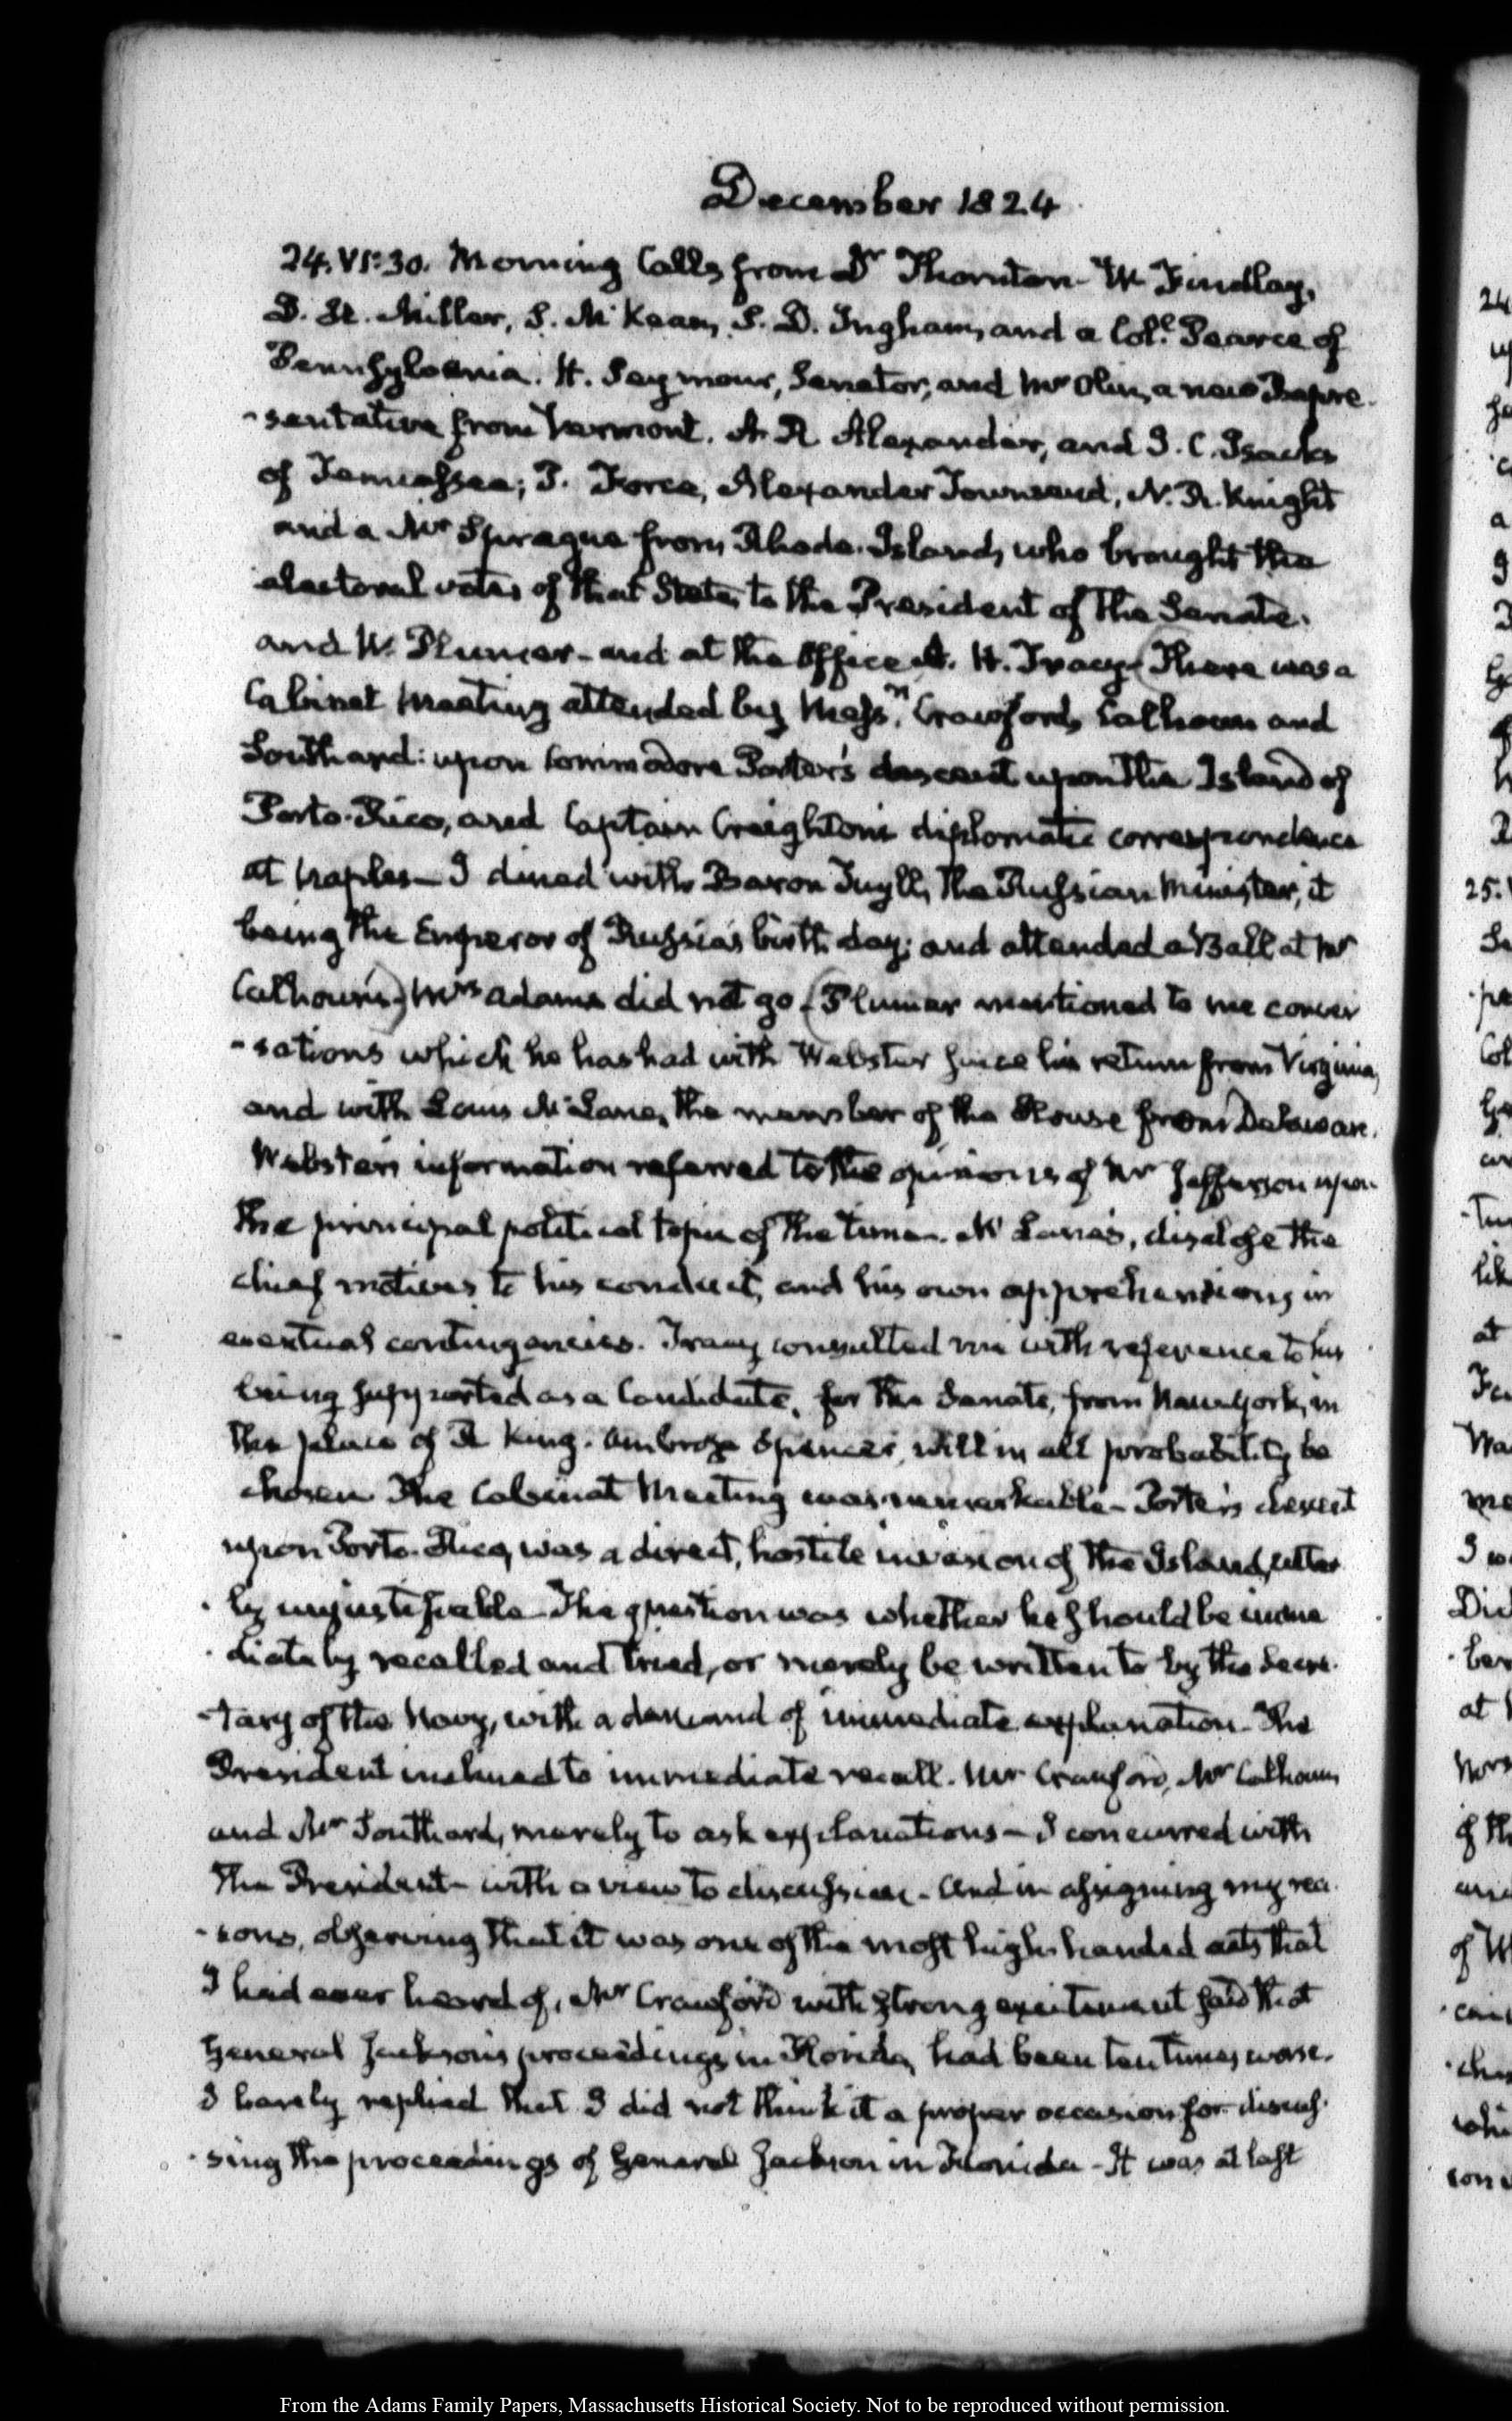 December 1824
24. VI:30. Morning Calls from Dr Thornton. W Findlay,
D. H. Miller, S. McKean, S. D. Ingham, and a Coll. Pearce of
Pennsylvania. H. Seymour, Senator, and Mr Olin, a new Repre-
-sentative from Vermont. A. R Alexander, and J. C. Isacks
of Tennessee; P. Force, Alexander Townsend, N. R. Knight
and a Mr Sprague from Rhode-Island, who brought the
electoral votes of that State, to the President of the Senate.
and W. Plumer—and at the Office A. H. Tracy— (There was a
Cabinet Meeting attended by Messrs. Crawford, Calhoun and
Southard: upon Commodore Porter's descent upon the Island of
Porto-Rico, and Captain Creighton's diplomatic correspondence
at Naples— I dined with Baron Tuyll, the Russian Minister, it
being the Emperor of Russia's birth day; and attended a Ball at Mr
Calhoun's.) Mrs Adams did not go. (Plumer mentioned to me conver
-sations which he has had with Webster since his return from Virginia,
and with Louis McLane, the member of the House from Delaware.
Webster's information referred to the opinions of Mr Jefferson upon
the principal political topic of the time. McLane's, disclose the
chief motives to his conduct, and his own apprehensions in
eventual contingencies. Tracy consulted me with reference to his
being supported as a Candidate, for the Senate, from New-York, in
the place of R King. Ambrose Spencer, will in all probability be
chosen. The Cabinet Meeting was remarkable— Porter's descent
upon Porto-Rico, was a direct, hostile invasion of the Island, utter
-ly unjustifiable. The question was whether he should be imme
-diately recalled and tried, or merely be written to by the Secre-
-tary of the Navy, with a demand of immediate explanation. The
President inclined to immediate recall. Mr Crawford, Mr Calhoun,
and Mr Southard, merely to ask explanations— I concurred with
the President— with a view to discussion— And in assigning my rea-
-sons, observing that it was one of the most high handed acts that
I had ever heard of, Mr Crawford with strong excitement said that
General Jackson's proceedings in Florida, had been ten times worse.
I barely replied that I did not think it a proper occasion for discus-
-sing the proceedings of General Jackson in Florida— It was at last
From the Adams Family Papers, Massachusetts Historical Society. Not to be reproduced without permission.